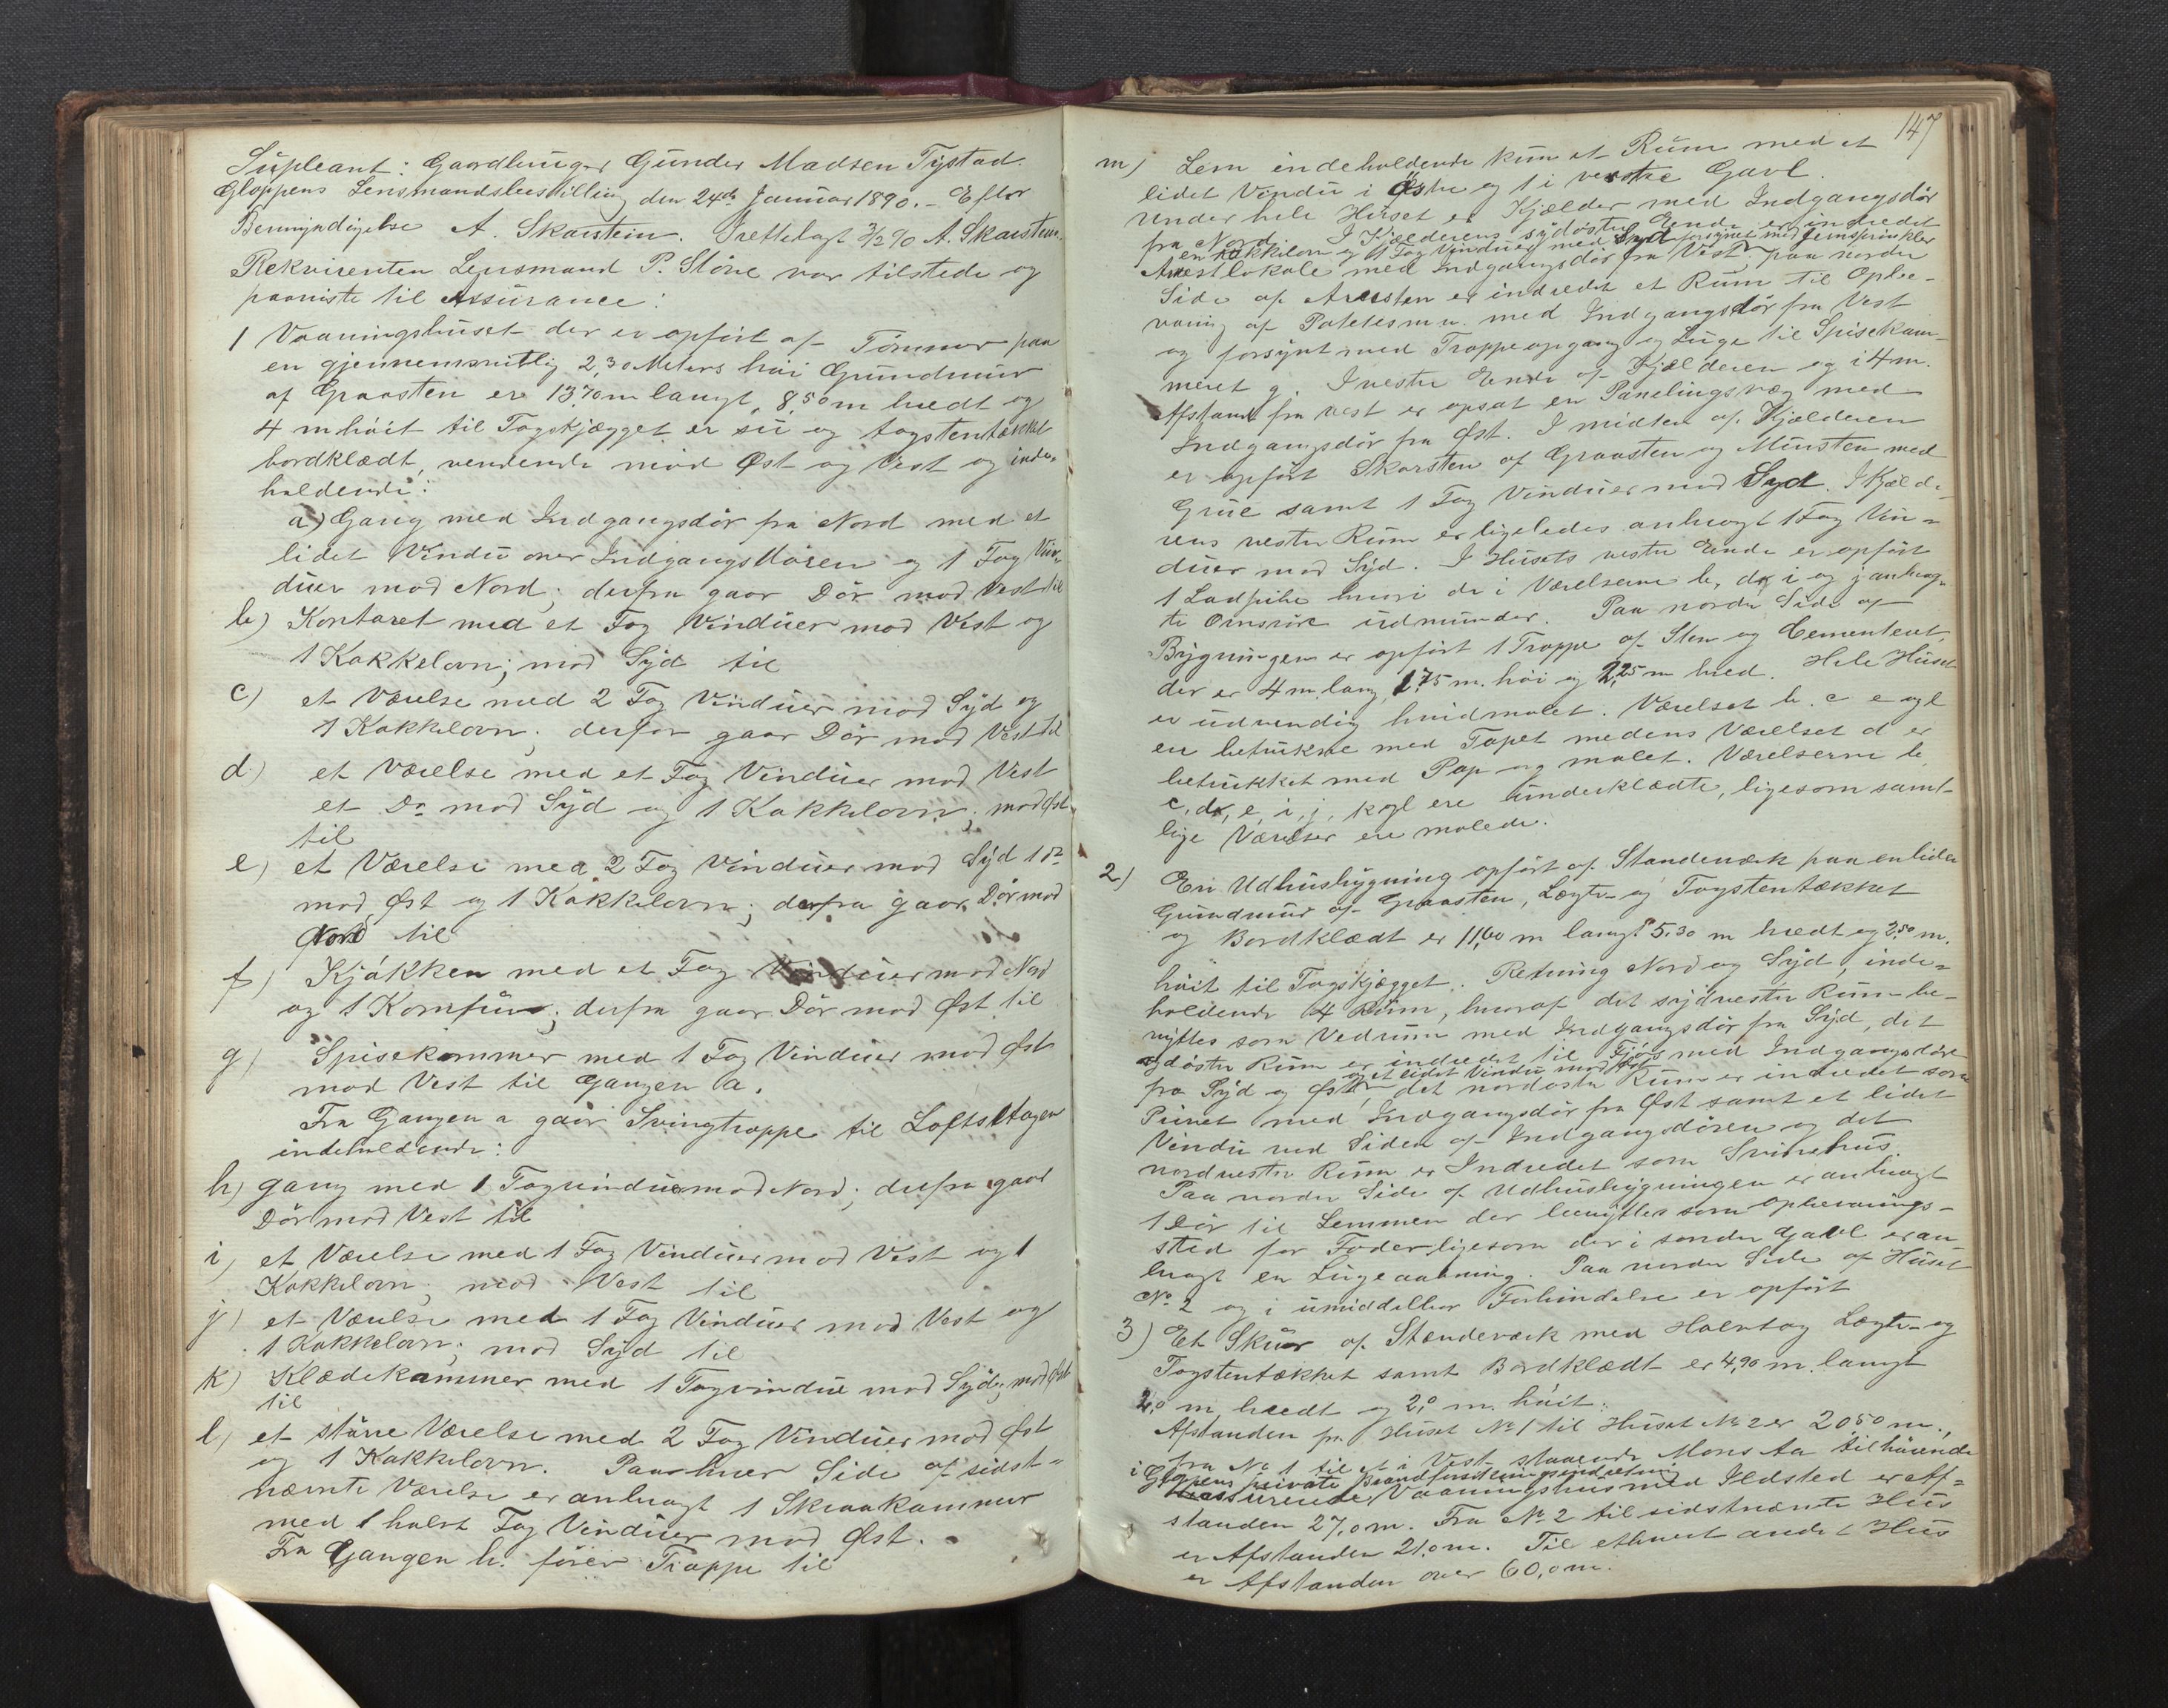 Supleant: Gaardbruger Gunder Madsen Tystad.
Gloppens Lensmandsbestilling den 24de Januar 1890. - Efter
Bemyndigelse A. Skarstein. Fremlagt 3/2 90 A. Skarstein.
Rekvirenten Lensmand P. Störe var tilstede og
paaviste til Assurance:
1 Vaaningshuset der er opfört af Tömmer paa
en gjennemsnitlig 2,30 Meters höi Grundmur
af Graasten er 13,70 m langt, 8,50 m bredt og
4 m höit til Tagskjægget er su og tagstentækket
bordklædt, vendende mod Øst og Vest og inde-
holdende:
a) Gang med Indgangsdör fra Nord med et
lidet Vindu over Indgangsdören og 1 Fag Vin-
duer mod Nord; derfra gaar Dör mod Vest til
b) Kontoret med et Fag Vinduer mod Vest og
1 Kakkelovn; mod Syd til
c) et Værelse med 2 Fag Vinduer mod Syd og
1 Kakkelovn; derfra gaar Dör mod Vest til
d) et Værelse med et Fag Vinduer mod Vest
et Do mod Syd og 1 Kakkelovn; mod Øst
til
e) et Værelse med 2 Fag Vinduer mod Syd 1 Do
mod Øst og 1 Kakkelovn; derfra gaar Dör mod
Nord til
f) Kjökken med et Fag Vinduer mod Nord
og 1 Komfur; derfra gaar Dör mod Øst til
g) Spisekammer med 1 Fag Vinduer mod Øst
mod Vest til Gangen a.
Fra Gangen a gaar Svingtrappe til Loftsetagen
indeholdende:
h) gang med 1 Fag vinduer mod Nord; derfra gaar
Dör mod Vest til
i) et Værelse med 1 Fag Vinduer mod Vest og 1
Kakkelovn; mod Vest til
j) et Værelse med 1 Fag Vinduer mod Vest og
1 Kakkelovn; mod Syd til
k) Klædekammer med 1 Tagvindue mod Syd; mod Øst
til
l) et större Værelse med 2 Fag Vinduer mod Øst
og 1 Kakkelovn. Paa hver Side af sidst-
nævnte Værelse er anbragt 1 Skraakammer
med 1 halvt Fag Vinduer mod Øst.
Fra Gangen h. förer Trappe til
147
m) Lem indeholdende kun et Rum med et
lidet Vindu i östre og 1 i vestre Gavl.
Under hele Huset er Kjælder med Indgangsdör
fra Nord. I Kjælderens sydöstre Ende er indredet
en Kakkelovn og 1 Fag Vinduer med Syd forsynet med Jernsprinkler
Arrestlokale med Indgangsdör fra Vest paa nordre
Side af Arresten er indredet et Rum til Opbe-
varing af Poteter m. v. med Indgangsdör fra Vest
og forsynt med Trappeopgang og Luge til Spisekam-
meret g. I vestre Ende af Kjælderen og i 4 m.
Afstand fra vest er opsat en Panelingsvæg med
Indgangsdör fra Øst. I midten af Kjælderen
er opfört Skorsten af Graasten og Mursten med
Grue samt 1 Fag Vinduer mod Syd. I Kjælde-
rens vestre Rum er ligeledes anbragt 1 Fag Vin-
duer mod Syd. I Husets vestre Ende er opfört
1 Ladpibe hvori de i Værelserne b, d, i og j anbrag-
te Ovnsrör udmunder. Paa nordre Side af
Bygningen er opfört 1 Trappe af Sten og Cementeret,
der er 4 m. lang, 1,75 m. höi og 2,25 m bred. Hele Huset
er udvendig hvidmalet. Værelset b. c e og l
ere betrukne med Tapet medens Værelset d er
betrukket med Pap og malet. Værelserne b,
c, d, e, i, j, k og l ere underklædte, ligesom samt-
lige Værelser ere malede.
2) En Udhusbygning opfört af Standeværk paa en liden
Grundmur af Graasten, Lægte- og Tagstentækket
og Bordklædt er 11,60 m langt 5,30 m bredt og 2,50 m.
höit til Tagskjægget. Retning Nord og Syd, inde-
holdende 4 Rum, hvoraf det sydvestre Rum be-
nyttes som Vedrum med Indgangsdör fra Syd, det
sydöstre Rum er indredet til Fjös med Indgangsdöre
og et lidet Vindu mod Øst
fra Syd og Øst, det nordöstre Rum er indredet som
Privet med Indgangsdör fra Øst samt et lidet
Vindu ved Siden af Indgangsdören og det
nordvestre Rum er Indredet som Svinehus
Paa nordre Side af Udhusbygningen er anbragt
1 Dör til Lemmen der benyttes som opbevarings-
sted for Foder ligesom der i söndre Gavl er an-
bragt en Lugeaabning. Paa nordre Side af Huset
No 2 og i umiddelbar Forbindelse er opfört
3) Et Skur af Standeværk med Halvtag Lægte- og
Tagstentækket samt Bordklædt er 4,90 m. langt
2,0 m bredt og 2,0 m. höit.
Afstanden fra Huset No 1 til Huset No 2 er 20,50 m.,
fra No 1 til et i Vest staaende Mons Aa tilhörende
i Gloppens private Brandforsikringsindretning
assurerede Vaaningshus med Ildsted er Af-
standen 27,0 m. Fra No 2 til sidstnævnte Hus
er Afstanden 21,0 m. Til ethvert andet Hus
er Afstanden over 60,0 m.